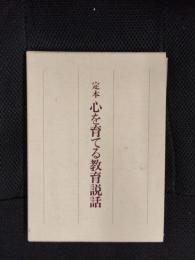 定本
心を育てる教育説話